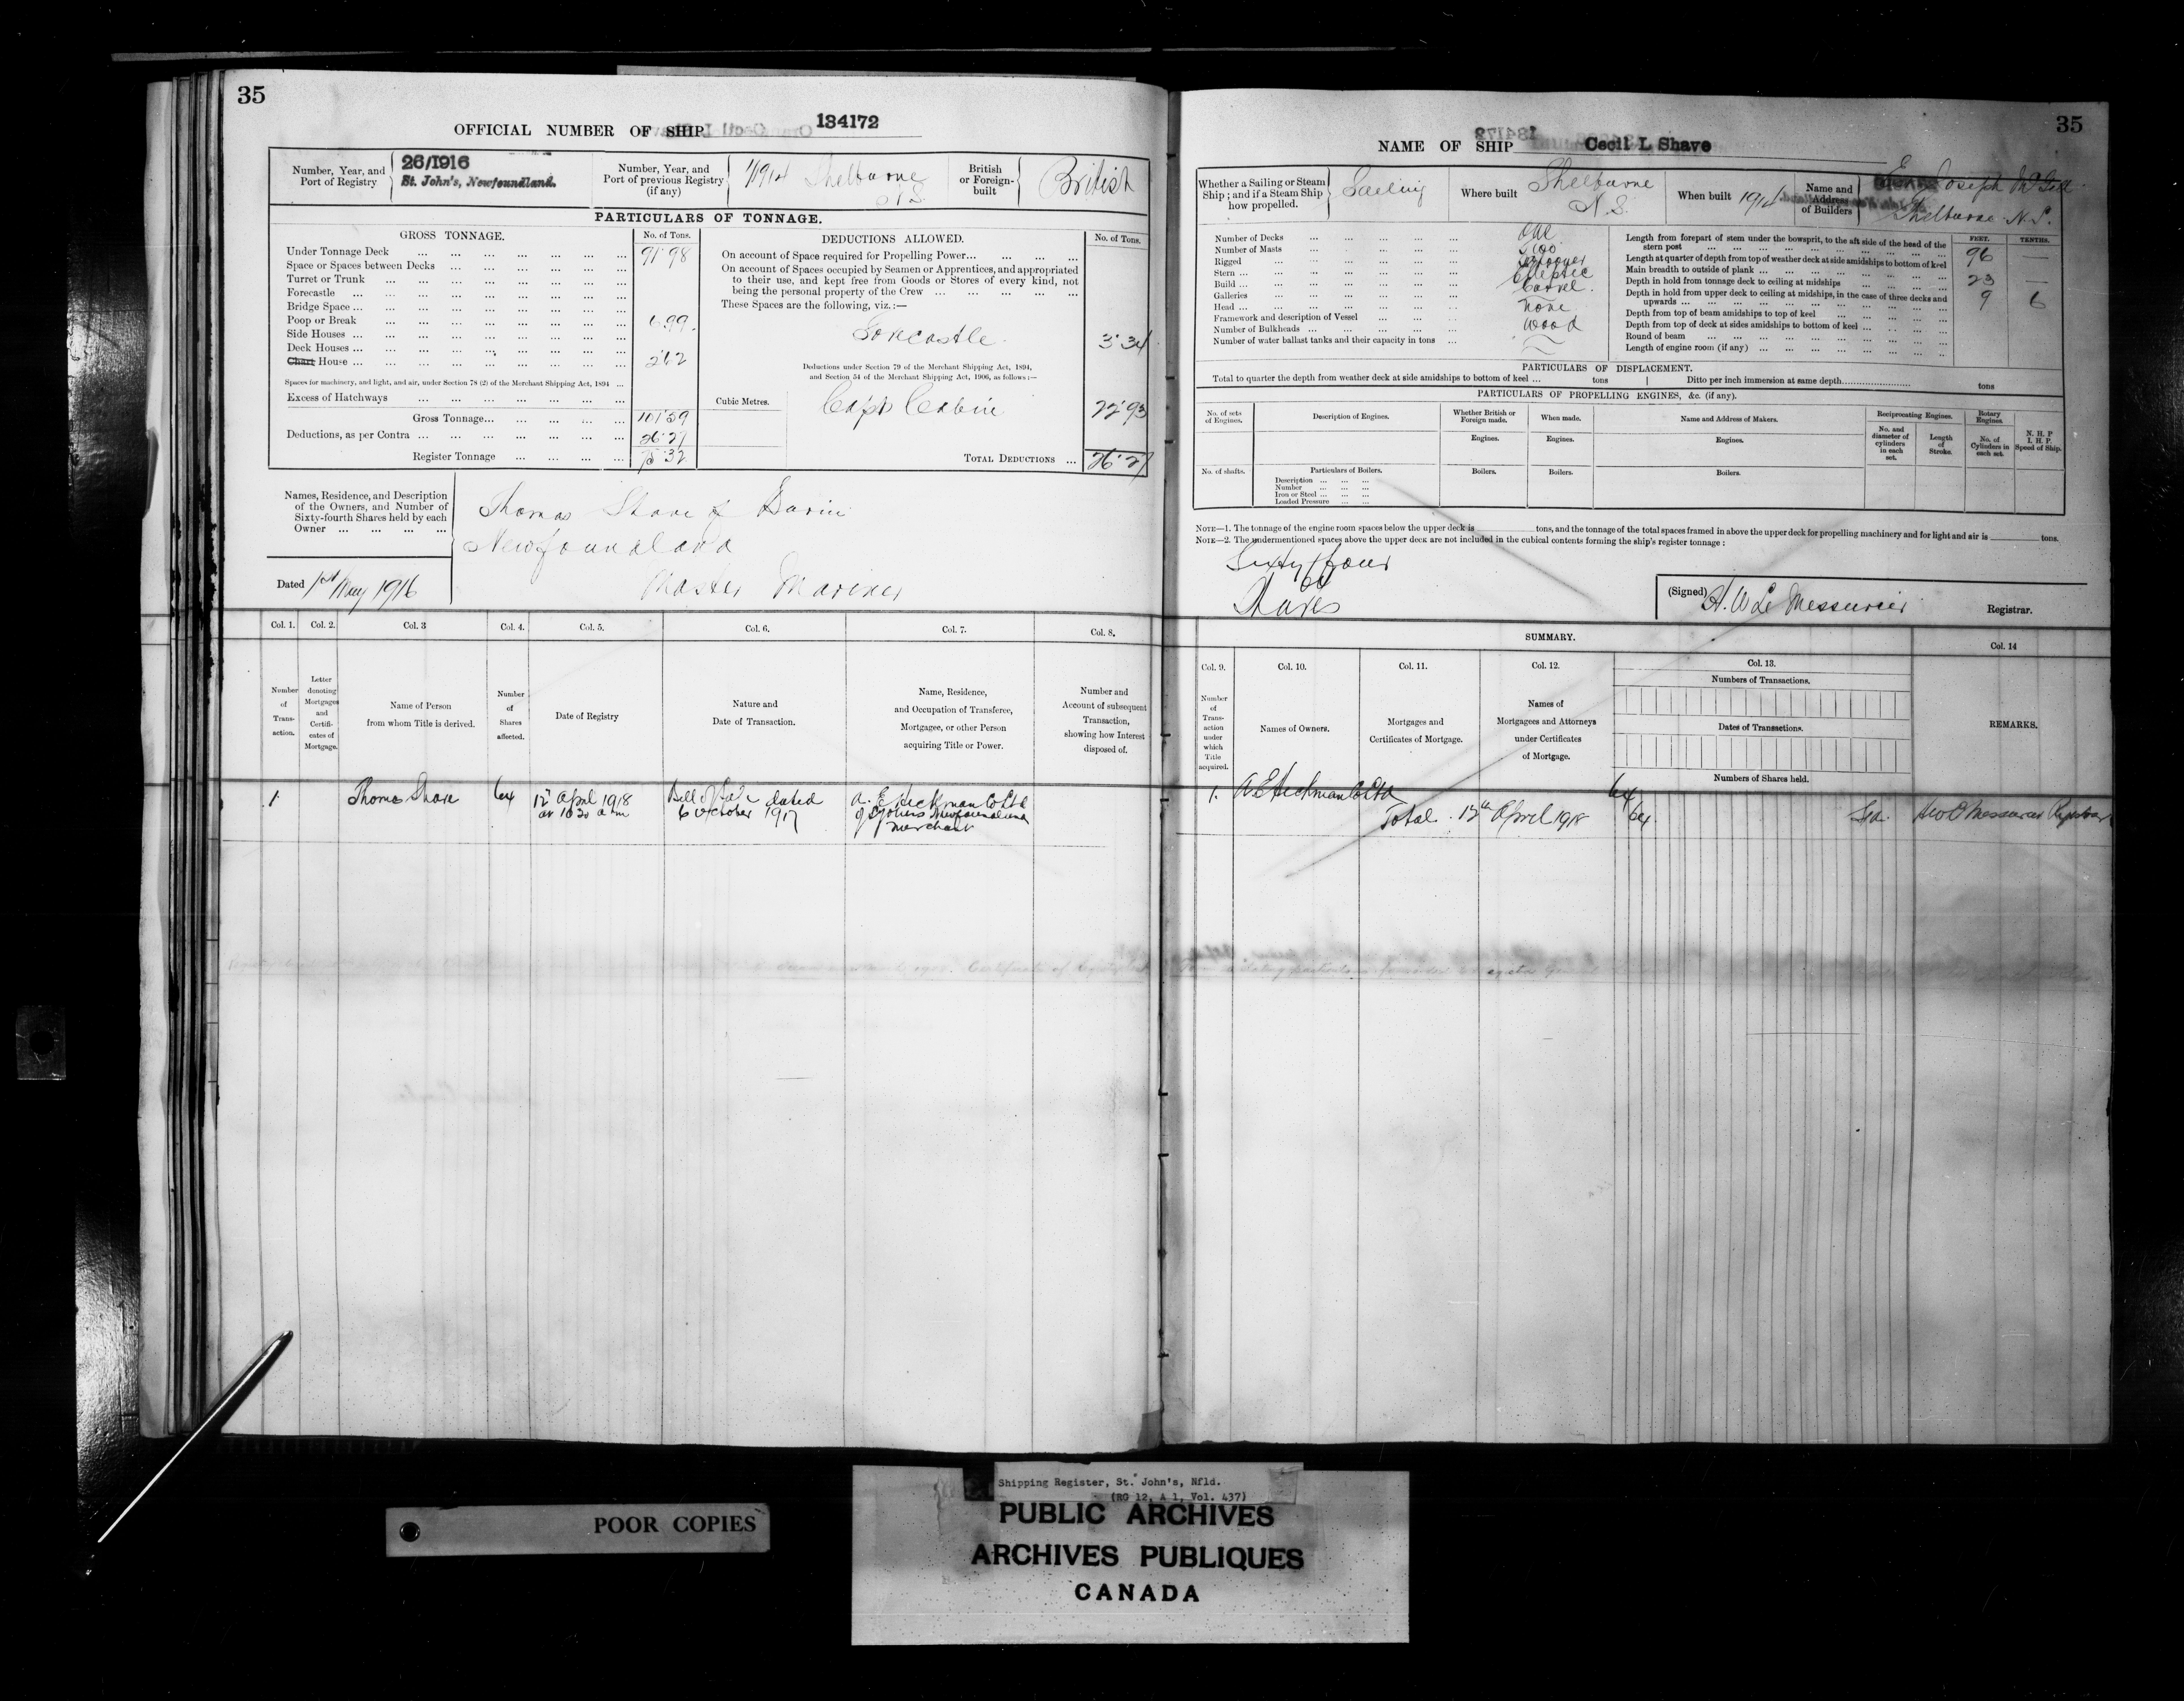 35
OFFICIAL NUMBER OF SHIP 134172
Number, Year, and Port of Registry
26/1916
St. John's, Newfoundland.
Number, Year, and Port of previous Registry (if any)
Shelburne
N S
British or Foreign-built
British
PARTICULARS OF TONNAGE.
GROSS TONNAGE.
No. of Tons.
Under Tonnage Deck ... 91.98
Space or Spaces between Decks ...
Turret or Trunk ...
Forecastle ...
Bridge Space ...
Poop or Break ... 6.99
Side Houses ...
Deck Houses ...
Chart House ... 2.62
Spaces for machinery, and light, and air, under Section 78 (2) of the Merchant Shipping Act, 1894 ...
Excess of Hatchways ...
Gross Tonnage... 101.59
Deductions, as per Contra ... 26.27
Register Tonnage ... 75.32
DEDUCTIONS ALLOWED.
No. of Tons.
On account of Space required for Propelling Power...
On account of Spaces occupied by Seamen or Apprentices, and appropriated
to their use, and kept free from Goods or Stores of every kind, not
being the personal property of the Crew ...
These Spaces are the following, viz.:—
Forecastle 3.34
Deductions under Section 79 of the Merchant Shipping Act, 1894,
and Section 54 of the Merchant Shipping Act, 1906, as follows:—
Cubic Metres.
Capt Cabin 22.93
TOTAL DEDUCTIONS ... 26.27
Names, Residence, and Description
of the Owners, and Number of
Sixty-fourth Shares held by each
Owner ...
Thomas Shave of Burin
Newfoundland
Master Mariner
Dated 1st May 1916
Col. 1.
Col. 2.
Col. 3
Col. 4.
Col. 5.
Col. 6.
Col. 7.
Col. 8.
Number of Trans-action.
Letter denoting Mortgages and Certifi-cates of Mortgage.
Name of Person from whom Title is derived.
Number of Shares affected.
Date of Registry
Nature and Date of Transaction.
Name, Residence, and Occupation of Transferee, Mortgagee, or other Person acquiring Title or Power.
Number and Account of subsequent Transaction, showing how Interest disposed of.
1
Thomas Shave
64
12th April 1918
at 10 30 a m
Bill of Sale dated
6 October 1917
A. E Hickman Co Ltd
of St Johns Newfoundland
Merchant
35
NAME OF SHIP Cecil L Shave
Whether a Sailing or Steam Ship; and if a Steam Ship how propelled.
Sailing
Where built
Shelburne
N.S.
When built 1914
Name and Address of Builders
Joseph McGill
Shelburne N.S.
Number of Decks ... One
Number of Masts ... Two
Rigged ... Schooner
Stern ... Elliptic
Build ... Carvel.
Galleries ...
Head ... None
Framework and description of Vessel ... Wood
Number of Bulkheads ...
Number of water ballast tanks and their capacity in tons ...
FEET. TENTHS.
Length from forepart of stem under the bowsprit, to the aft side of the head of the
stern post ... 96 —
Length at quarter of depth from top of weather deck at side amidships to bottom of keel
Main breadth to outside of plank ... 23 —
Depth in hold from tonnage deck to ceiling at midships ... 9 6
Depth in hold from upper deck to ceiling at midships, in the case of three decks and
upwards ...
Depth from top of beam amidships to top of keel ...
Depth from top of deck at sides amidships to bottom of keel ...
Round of beam ...
Length of engine room (if any) ...
PARTICULARS OF DISPLACEMENT.
Total to quarter the depth from weather deck at side amidships to bottom of keel ... tons
Ditto per inch immersion at same depth... tons
PARTICULARS OF PROPELLING ENGINES, &c. (if any).
No. of sets of Engines.
Description of Engines.
Whether British or Foreign made.
When made.
Name and Address of Makers.
Reciprocating Engines.
Rotary Engines.
N. H. P
I. H. P.
Speed of Ship.
No. and diameter of cylinders in each set.
Length of Stroke.
No. of Cylinders in each set.
Engines.
Engines.
Engines.
No. of shafts.
Particulars of Boilers.
Description ...
Number ...
Iron or Steel ...
Loaded Pressure ...
Boilers.
Boilers.
Boilers.
NOTE—1. The tonnage of the engine room spaces below the upper deck is tons, and the tonnage of the total spaces framed in above the upper deck for propelling machinery and for light and air is tons.
NOTE—2. The undermentioned spaces above the upper deck are not included in the cubical contents forming the ship's register tonnage:
Sixty four
Shares
(Signed) H. W Le Messurier
Registrar.
SUMMARY.
Col. 9.
Col. 10.
Col. 11.
Col. 12.
Col. 13.
Col. 14
Number of Trans-action under which Title acquired.
Names of Owners.
Mortgages and Certificates of Mortgage.
Names of Mortgagees and Attorneys under Certificates of Mortgage.
Numbers of Transactions.
Dates of Transactions.
Numbers of Shares held.
REMARKS.
1. A E Hickman Co Ltd 64
Total 12th April 1918 64.
Sgd. H W Le Messurier Registrar
Shipping Register, St. John's, Nfld.
(RG 12, A 1, Vol. 437)
POOR COPIES
PUBLIC ARCHIVES
ARCHIVES PUBLIQUES
CANADA